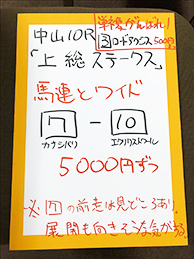 中山10R
単勝がんばれ!
3 ロードアクシス 500円
「上総ステークス」
馬連とワイド
7 - 10
カナシバリ エクリリストワール
5000円ずつ
※ 7 の前走は見どころあり。
展開も向きそうな気がする。